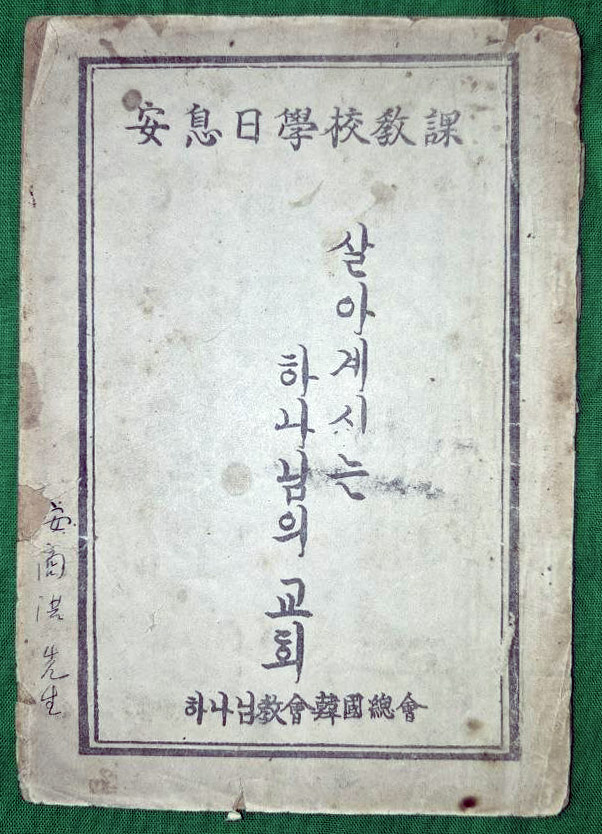 安息日學校敎課
살아계시는
하나님의 교회
하나님敎會韓國總會
安商洪 先生